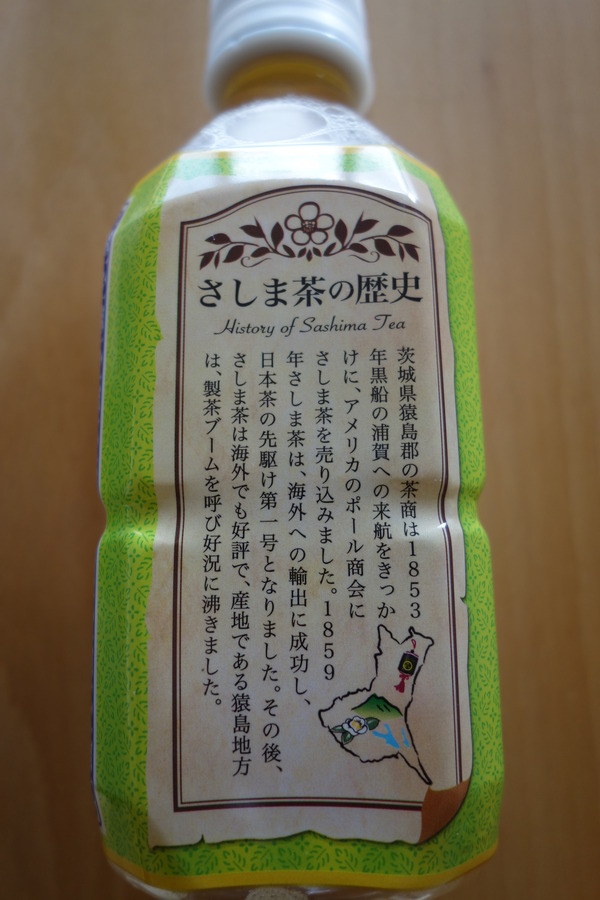 さしま茶の歴史
History of Sashima Tea
茨城県猿島郡の茶商は1853
年黒船の浦賀への来航をきっか
けに、アメリカのポール商会に
さしま茶を売り込みました。1859
年さしま茶は、海外への輸出に成功し、
日本茶の先駆け第一号となりました。その後、
さしま茶は海外でも好評で、産地である猿島地方
は、製茶ブームを呼び好況に沸きました。